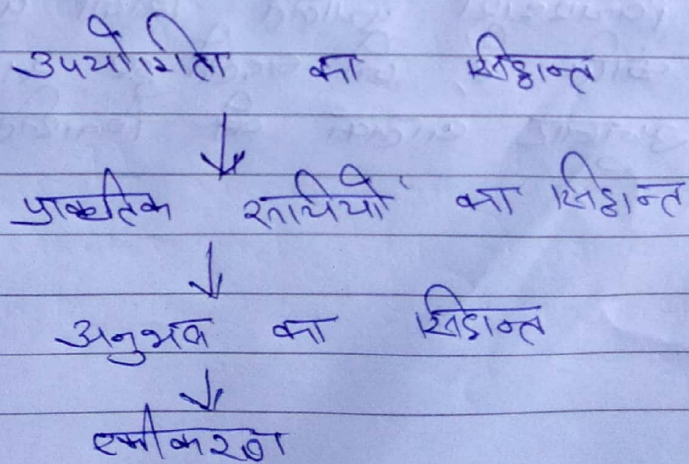 उपयोगिता का सिद्धान्त
↓
प्राकृतिक रूचियों का सिद्धान्त
↓
अनुभव का सिद्धान्त
↓
एकीकरण